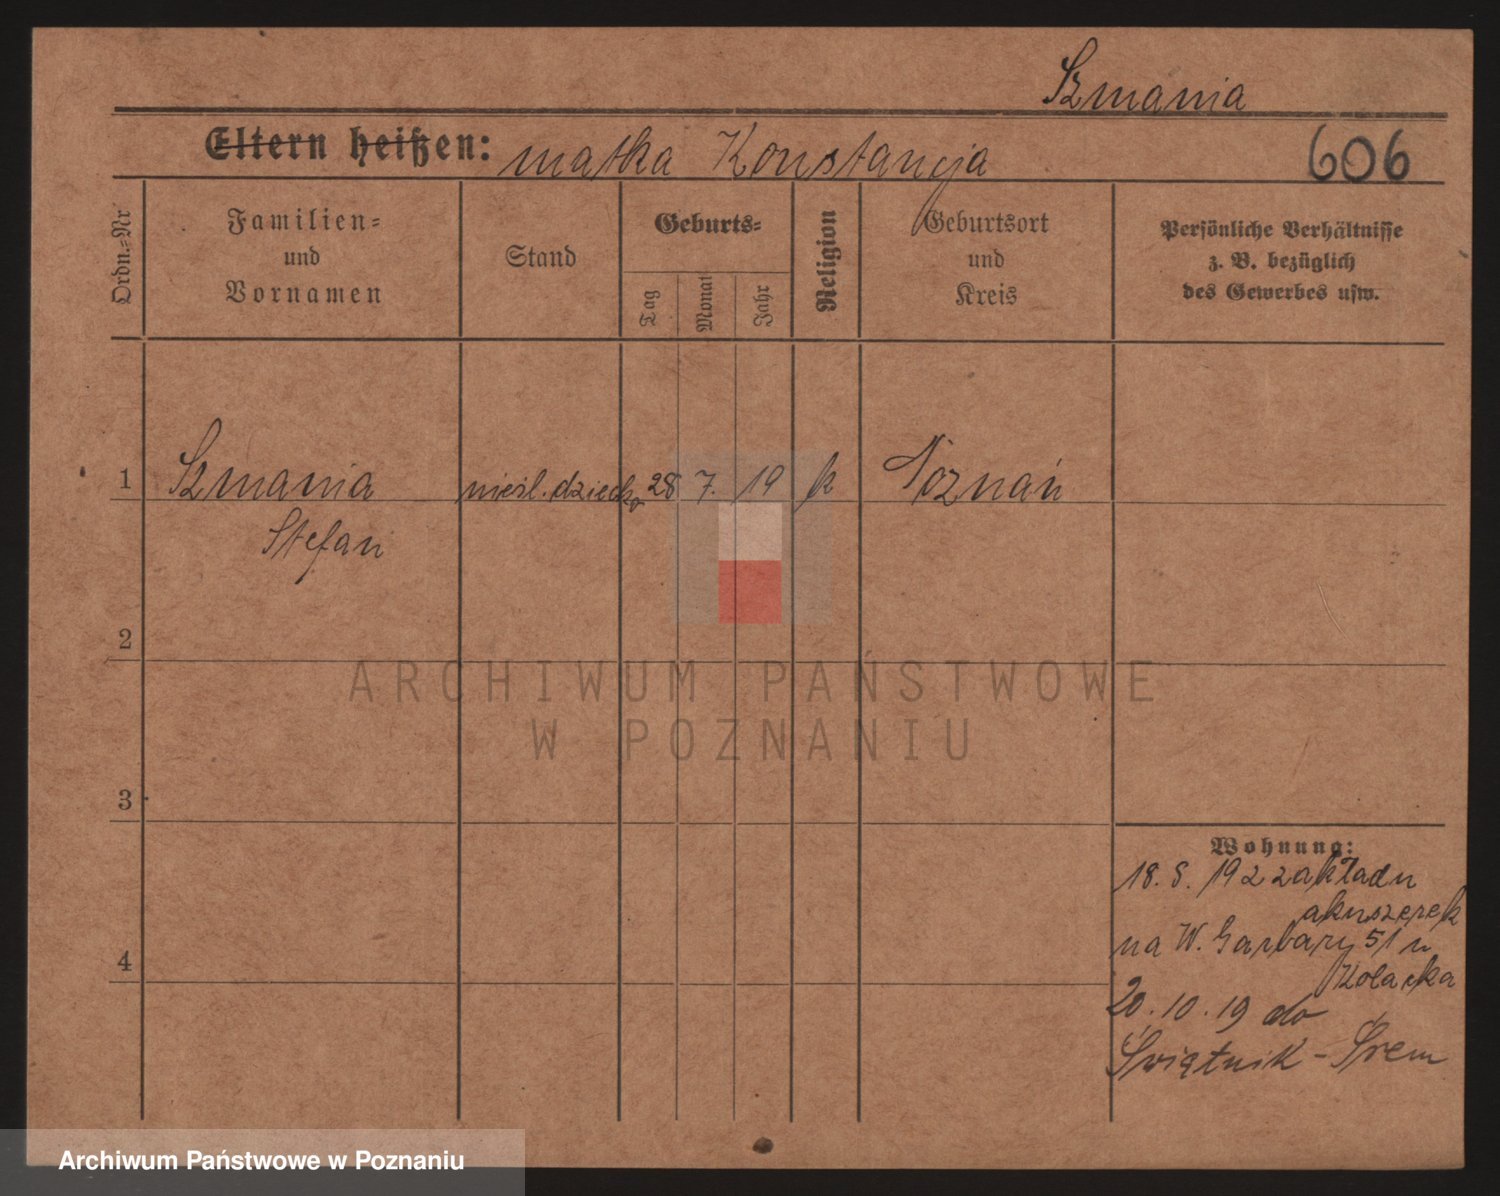 Szmania
Eltern heißen: matka Konstancja
606
Ordn.=Nr
Familien=
und
Vornamen
Stand
Geburts=
Tag
Monat
Jahr
Religion
Geburtsort
und
Kreis
Persönliche Verhältnisse
z. B. bezüglich
des Gewerbes usw.
1 Szmania nieśl. dziecko 28 7. 19 k Poznań
Stefan
2
ARCHIWUM PAŃSTWOWE
W POZNANIU
3
Wohnung:
18. 8. 19 z zakładu
akuszerek
na W. Garbary 51 u
20. 10. 19 do
Świątnik - Śrem
4
Archiwum Państwowe w Poznaniu